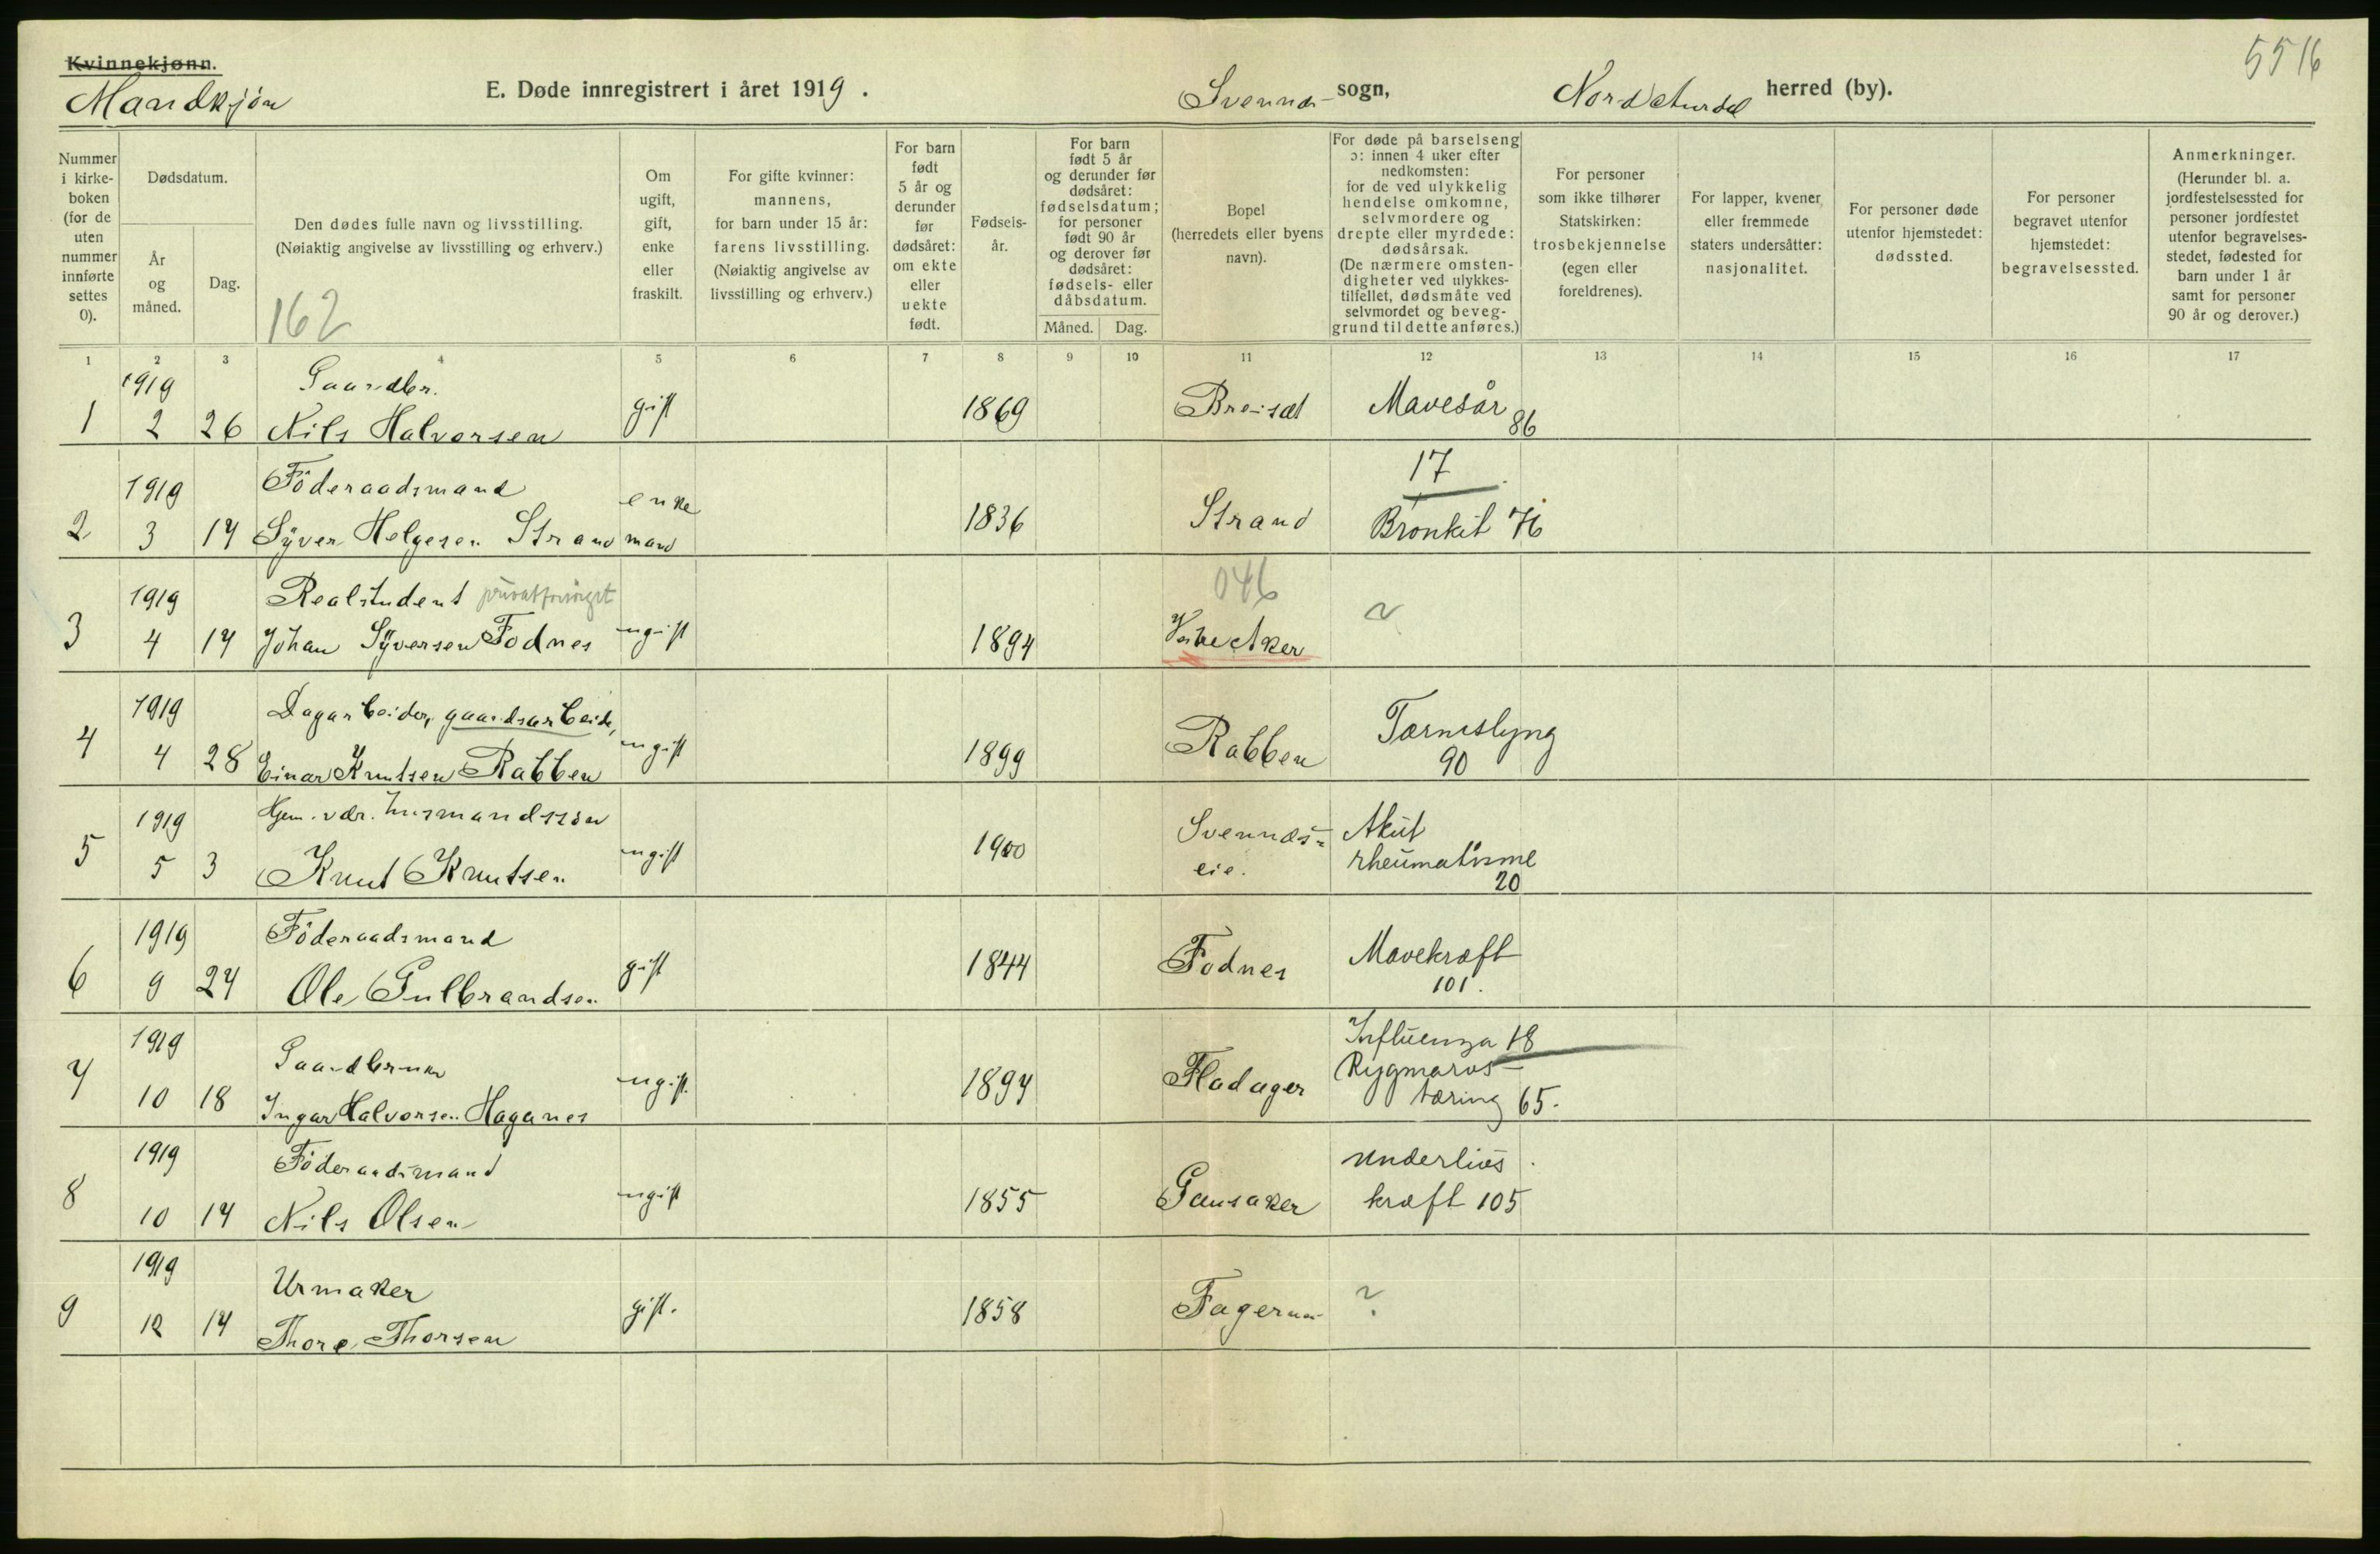 5516
Kvinnekjønn.
Mandkjön
E. Døde innregistrert i året 1919.
Svennes sogn,
Nordaurdal herred (by).
Nummer i kirke-boken (for de uten nummer innførte settes 0).
Dødsdatum.
År og måned.
Dag.
Den dødes fulle navn og livsstilling.
(Nøiaktig angivelse av livsstilling og erhverv.)
162
Om ugift, gift, enke eller fraskilt.
For gifte kvinner: mannens, for barn under 15 år: farens livsstilling.
(Nøiaktig angivelse av livsstilling og erhverv.)
For barn født 5 år og derunder før dødsåret: om ekte eller uekte født.
Fødsels-år.
For barn født 5 år og derunder før dødsåret: fødselsdatum; for personer født 90 år og derover før dødsåret: fødsels- eller dåbsdatum.
Måned. Dag.
Bopel (herredets eller byens navn).
For døde på barselseng ɔ: innen 4 uker efter nedkomsten: for de ved ulykkelig hendelse omkomne, selvmordere og drepte eller myrdede: dødsårsak.
(De nærmere omsten-digheter ved ulykkes-tilfellet, dødsmåte ved selvmordet og beveg-grund til dette anføres.)
For personer som ikke tilhører Statskirken: trosbekjennelse (egen eller foreldrenes).
For lapper, kvener, eller fremmede staters undersåtter: nasjonalitet.
For personer døde utenfor hjemstedet: dødssted.
For personer begravet utenfor hjemstedet: begravelsessted.
Anmerkninger.
(Herunder bl. a. jordfestelsessted for personer jordfestet utenfor begravelses-stedet, fødested for barn under 1 år samt for personer 90 år og derover.)
1 2 3 4 5 6 7 8 9 10 11 12 13 14 15 16 17
1919 Gaardbr.
1 2 26 Nils Halvorsen gift 1869 Breisæt Mavesår 86
1919 Föderaadsmand enke 17
2 3 14 Syver Helgesen Strand mand 1836 Strand Bronkit 76
1919 Realstudent 046
3 4 14 Johan Syversen Fodnes ugift 1894 V. Aker ?
1919 Dagarbeider, gaardsarbeide,
4 4 28 Einar Knutsen Rabben ugift 1899 Rabben Tarmslyng
90
1919 Hjem. vær. husmandssön
5 5 3 Knut Knutsen ugift 1900 Svennes= eie. Akut rheumatisme
20
1919 Föderaadsmand
6 9 24 Ole Gulbrandsen gift 1844 Fodnes Mavekræft
101.
1919 Influenza 18
7 10 18 Ingar Halvorsen Haganes ugift. 1894 Fladager Rygmarvs-tæring 65.
1919 Föderaadsmand
8 10 14 Nils Olsen ugift 1855 Gausaker Underlivskræft 105
1919 Urmaker
9 12 14 Thore Thorsen gift. 1858 Fagernes ?